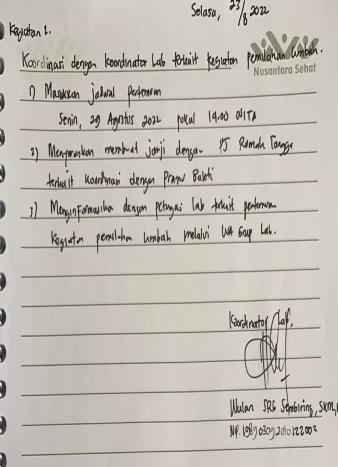 Selasa, 23/8 2022
Kegiatan 1.
Koordinasi dengan koordinator Lab terkait kegiatan pemilahan limbah.
Nusantara Sehat
1) Masukkan jadwal pertemuan
Senin, 29 Agustus 2022 pukul 14.00 WITA
2) Menyarankan membuat janji dengan PJ Rumah Tangga
terkait koordinasi dengan Bakti
3) Menginformasikan dengan petugas lab terkait pertemuan
Kegiatan pemilahan limbah melalui WA Grup Lab.
Koordinator Lab.
Wulan SRG Sembiring, SKM,